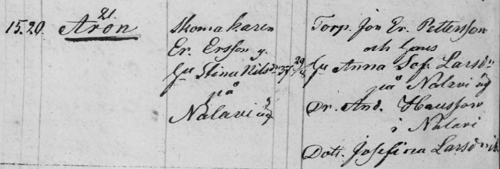 21.
15. 20. Aron
Skomakaren
Er. Ersson o.
Hu Stina Nilsdr 37 29/12
på
Nalavi äg
Torp. Jon Er. Pettersson
och hans
Hu Anna Sof. Larsdr
på Nalavi äg
Dr. And. Hansson
i Nalavi
Dott. Josefina Larsdr ib.